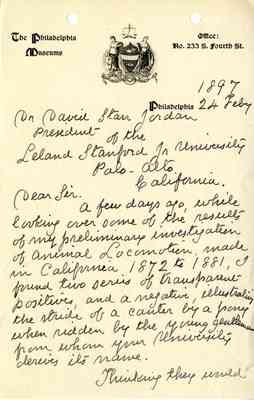 The Philadelphia
Museums
Office:
No. 233 S. Fourth St.
1897
Philadelphia 24 Feby
Dr David Starr Jordan
President of the
Leland Stanford Jr University
Palo-Alto
California.
Dear Sir.
A few days ago, while
looking over some of the results
of my preliminary investigation
of Animal Locomotion, made
in California, 1872 to 1881, I
found two series of transparent
positives, and a negative, illustrating
the stride of a canter by a pony
when ridden by the young gentleman
from whom your University
derives its name.
Thinking they would